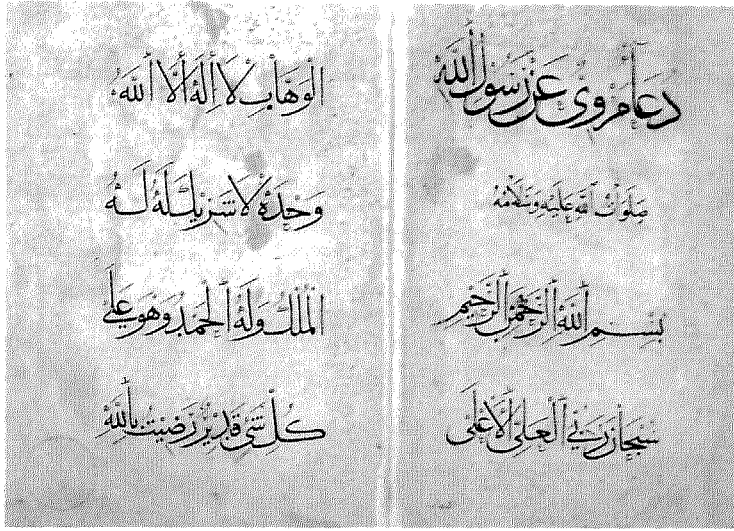 دعا مروي عن رسول الله
صلوات الله عليه وسلامه
بسم الله الرحمن الرحيم
سبحان ربي العلي الاعلى
الوهاب لا اله الا الله
وحده لا شريك له له
الملك وله الحمد وهو على
كل شي قدير رضيت بالله